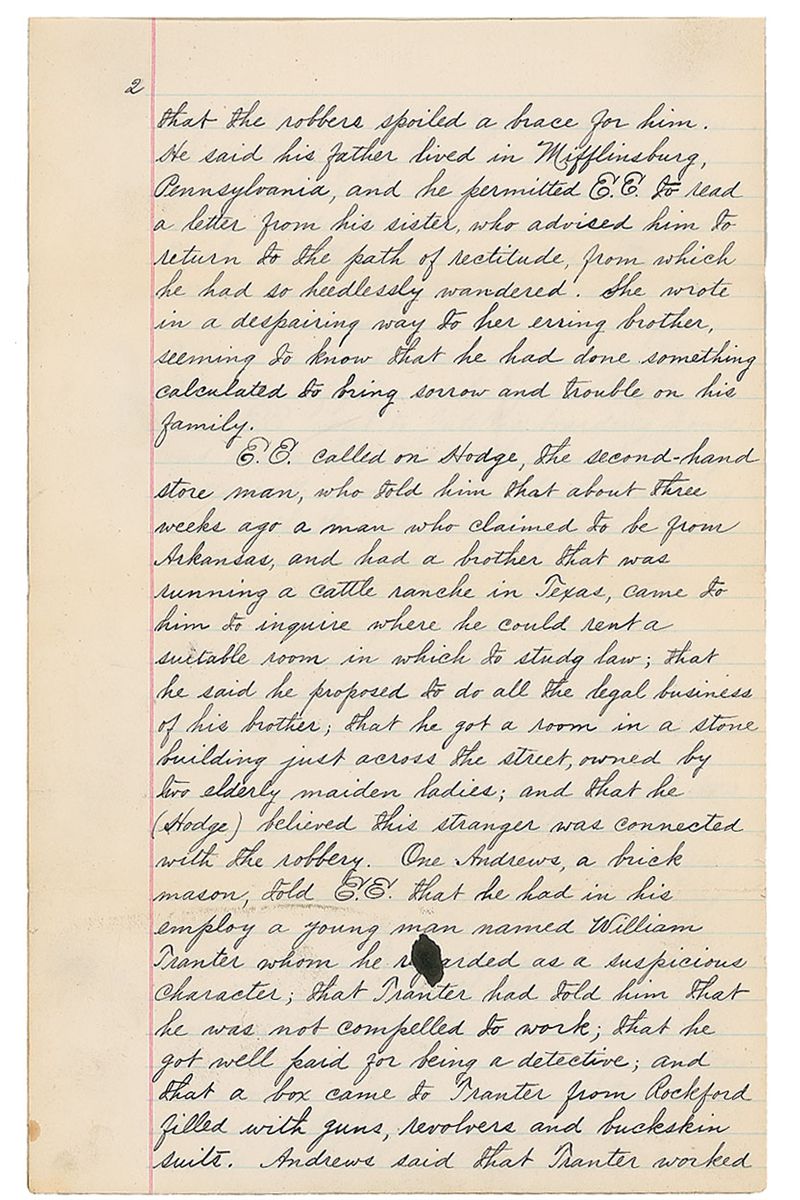 2
that the robbers spoiled a brace for him.
He said his father lived in Mifflinsburg,
Pennsylvania, and he permitted E.E. to read
a letter from his sister, who advised him to
return to the path of rectitude, from which
he had so heedlessly wandered. She wrote
in a despairing way to her erring brother,
seeming to know that he had done something
calculated to bring sorrow and trouble on his
family.
E.E. called on Hodge, the second-hand
store man, who told him that about three
weeks ago a man who claimed to be from
Arkansas, and had a brother that was
running a cattle ranche in Texas, came to
him to inquire where he could rent a
suitable room in which to study law; that
he said he proposed to do all the legal business
of his brother; that he got a room in a stone
building just across the street, owned by
two elderly maiden ladies; and that he
(Hodge) believed this stranger was connected
with the robbery. One Andrews, a brick
mason, told E.E. that he had in his
employ a young man named William
Tranter whom he as a suspicious
character; that Tranter had told him that
he was not compelled to work; that he
got well paid for being a detective; and
that a box came to Tranter from Rockford
filled with guns, revolvers and buckskin
suits. Andrews said that Tranter worked